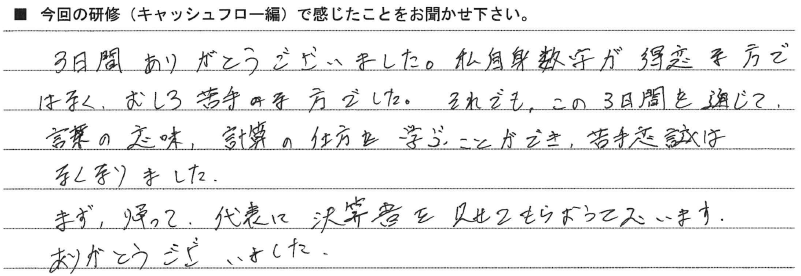 ■ 今回の研修（キャッシュフロー編）で感じたことをお聞かせ下さい。
3日間ありがとうございました。私自身数字が得意な方で
はなく、むしろ苦手な方でした。それでも、この3日間を通じて、
言葉の意味、計算の仕方を学ぶことができ、苦手意識は
なくなりました。
まず、帰って、代表に決算書を見せてもらおうと思います。
ありがとうございました。